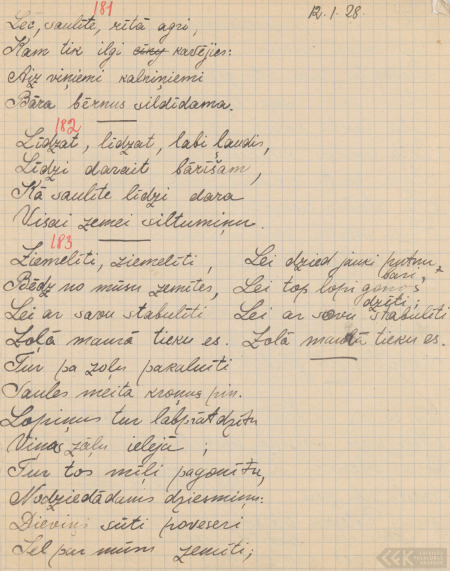 181
12.1.28.
Lec, saulīte, rītā agri,
Kam tik ilgi kavējies:
Aiz viņiemi kalniņiemi
Bāra bērnus sildīdama.
182
Līdzat, līdzat, labi ļaudis,
Līdzi darait bārīšam,
Kā saulīte līdzi dara
Visai zemei siltumiņu.
183
Ziemelīti, ziemelīti,
Bēdz no mūsu zemītes,
Lei ar savu stabulīti
Zoļā maurā tieku es.
Tur pa zoļu pakalnīti
Saules meita kroņus pin.
Lopiņus tur labprāt dzītu
Viņas zāļu ielejā;
Tur tos mīļi paganītu,
Nodziedādams dziesmiņu:
Dieviņš sūti paveseri
Šel par mūsu zemīti;
Lei dzied jauki putnu bari,
Lei top lopi ganos dzīti;
Lei ar savu stabulīti
Zolā maurā tieku es.